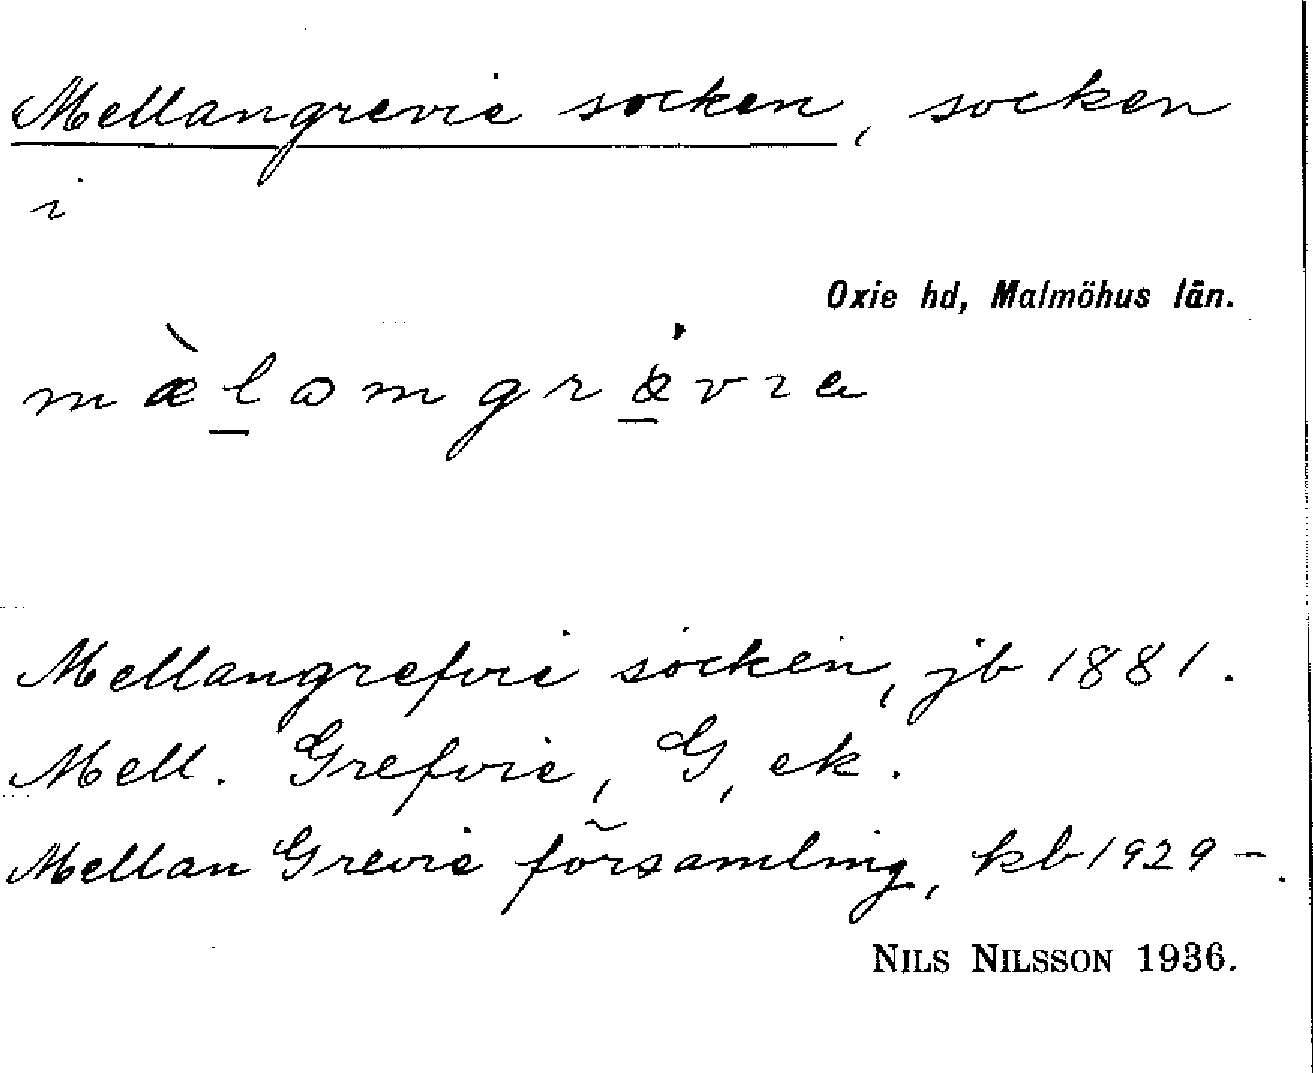 Mellangrevie socken, socken
i
Oxie hd, Malmöhus län.
mæ̀lamgrǽvia
Mellangrefvie socken, jb 1881.
Mell. Grefvie, G, ek.
Mellan Grevie församling, kb 1929-.
NILS NILSSON 1936.